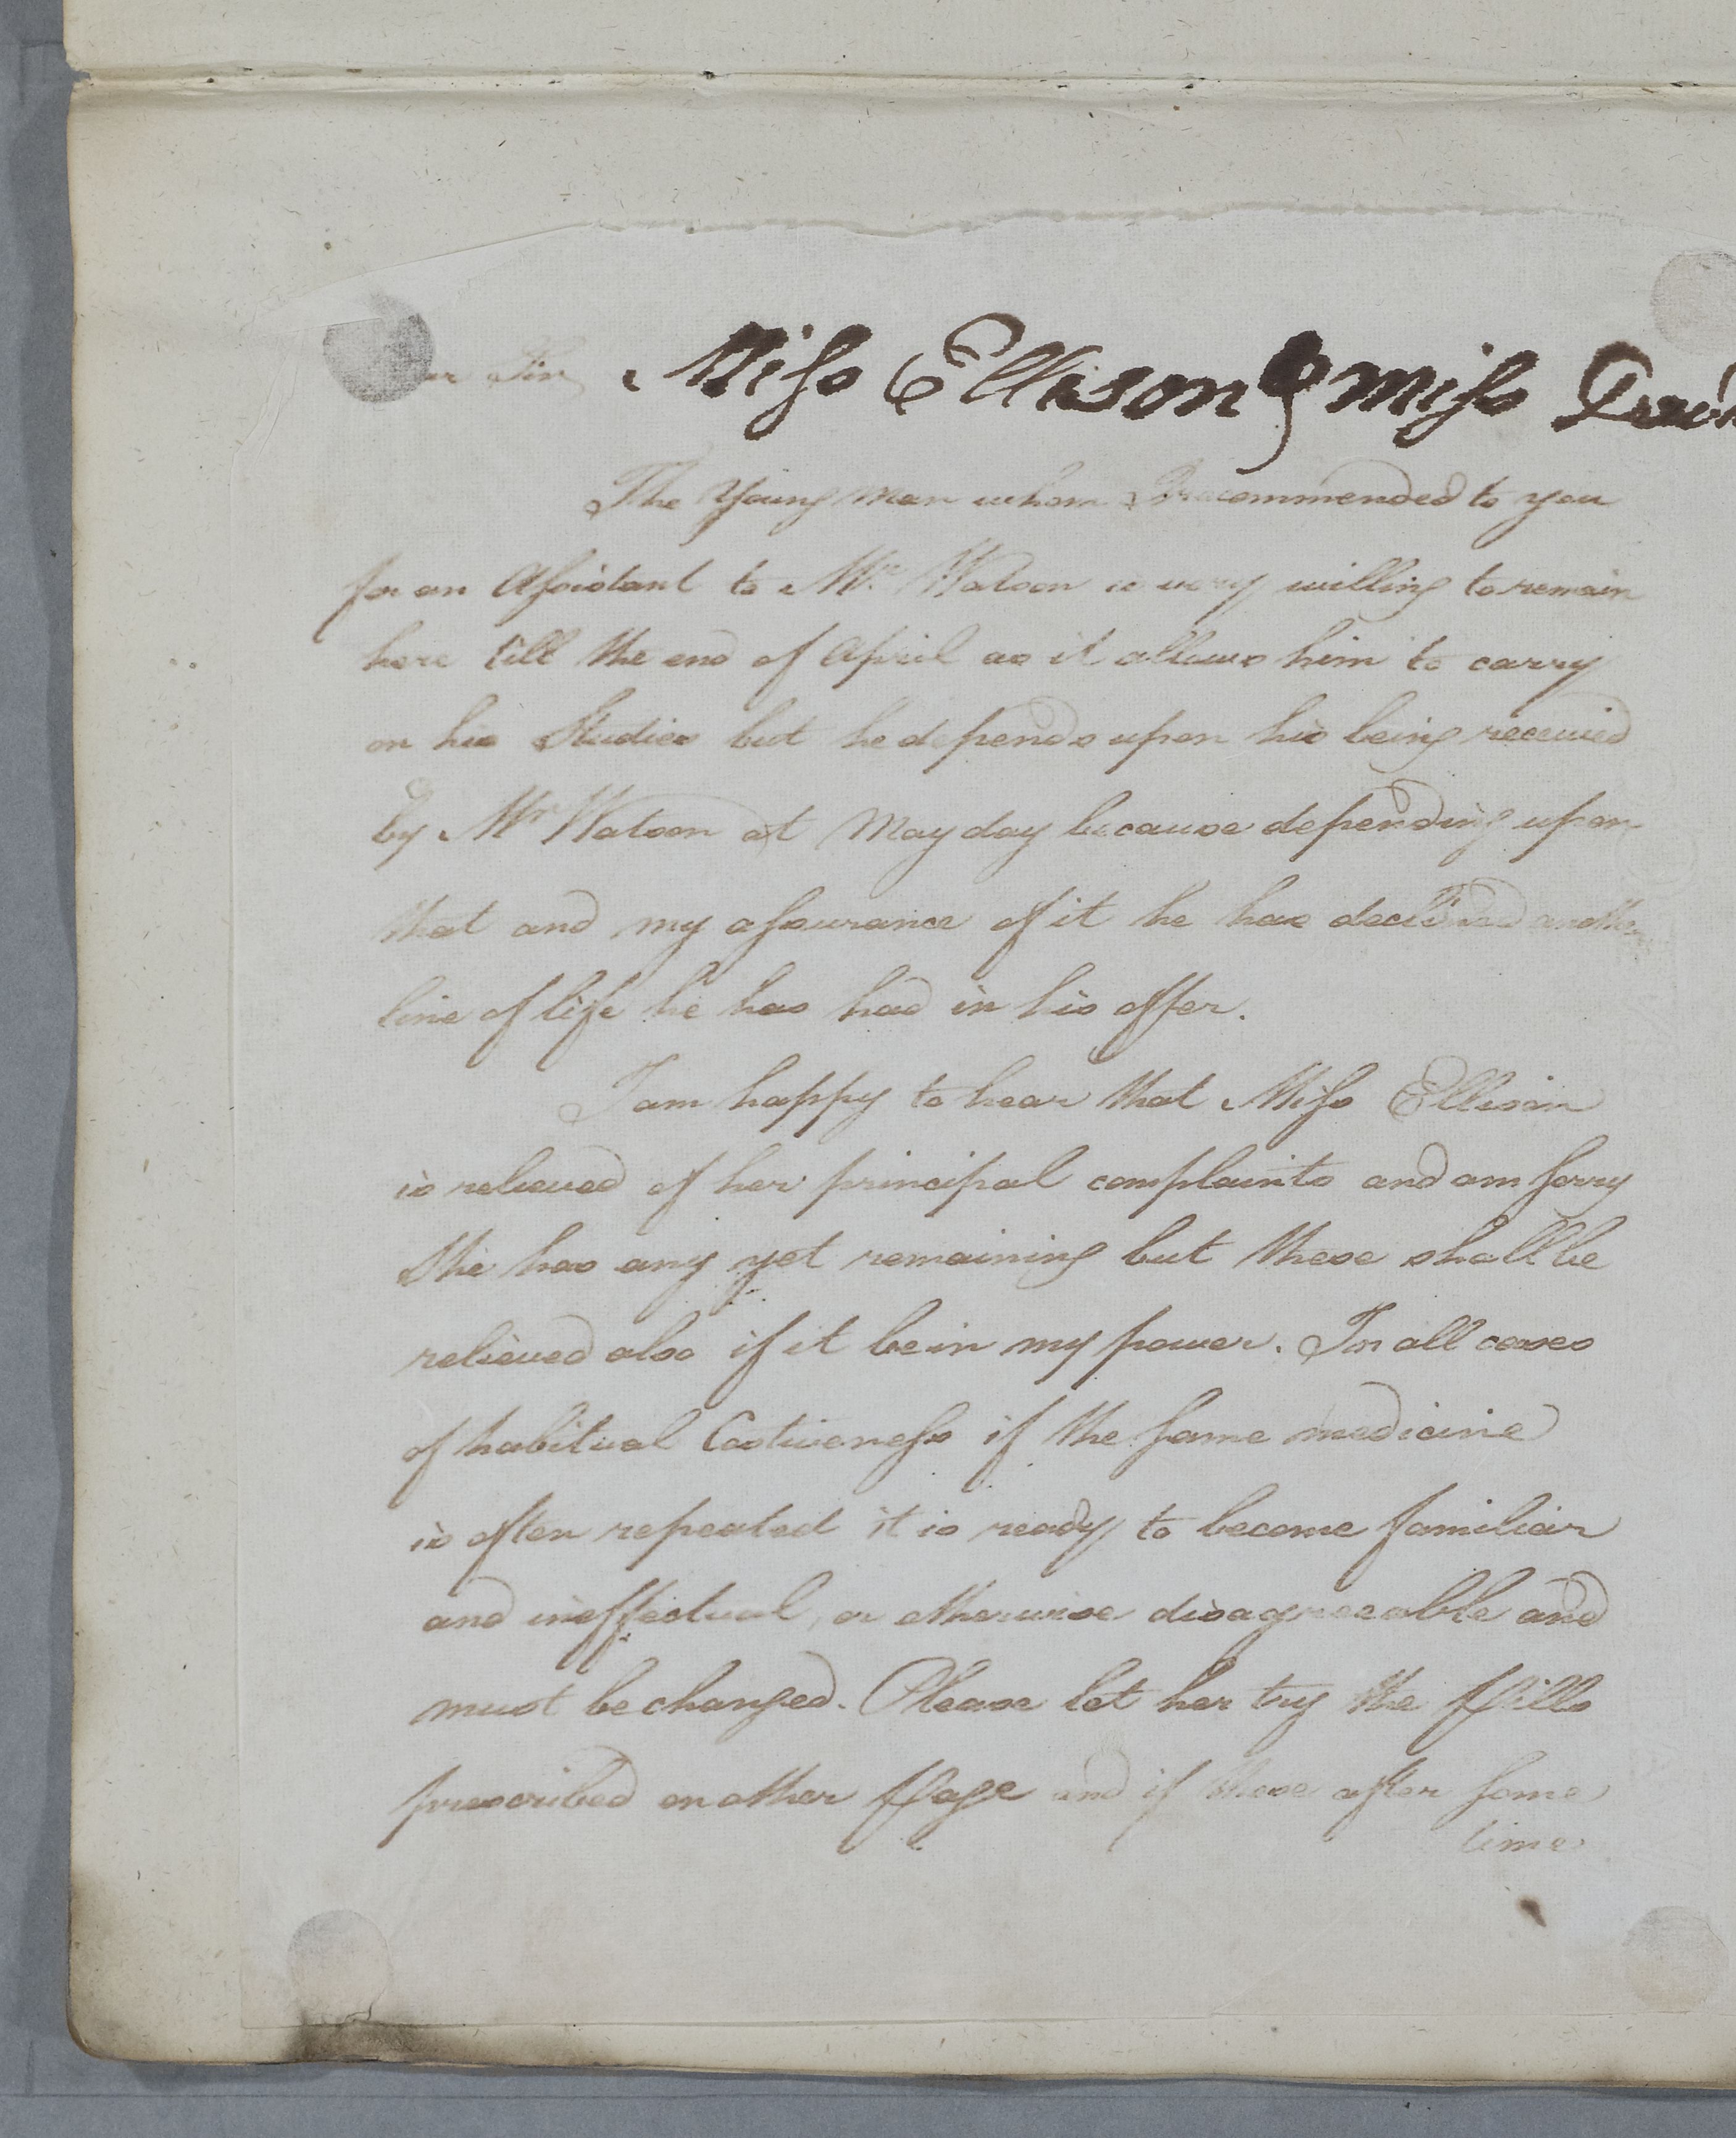 Sir
Miss Ellison & miss
The Young Man whom I recommended to you
for an Assistant to Mr. Watson is very willing to remain
here till the end of April as it allows him to carry
on his Studies but he depends upon his being received
by Mr Watson at May day because depending upon
that and my assurance of it he has declined another
line of life he has had in his offer.
I am happy to hear that Miss Ellison
is relieved of her principal complaints and am sorry
She has any yet remaining but these shall be
relieved also if it be in my power. In all cases
of habitual Costiveness if the same medicine
is often repeated it is ready to become familiar
and ineffectual, or otherwise disagreeable and
must be changed. Please let her try the pills
prescribed on other page and if these after some
time